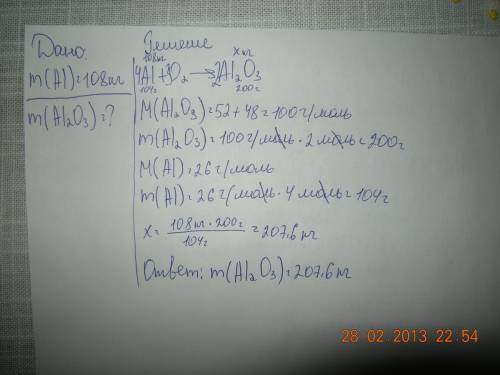 Дано:
m(Al)=108кг
m(Al₂O₃)=?
Решение
108кг x кг
4Al+3O₂→2Al₂O₃
104г 200г
M(Al₂O₃)=52+48=100г/моль
m(Al₂O₃)=100г/моль·2моль=200г
M(Al)=26г/моль
m(Al)=26г/моль·4моль=104г
x=108кг·200г/104г=207,6кг
Ответ: m(Al₂O₃)=207,6кг
28 02 2013 22:54